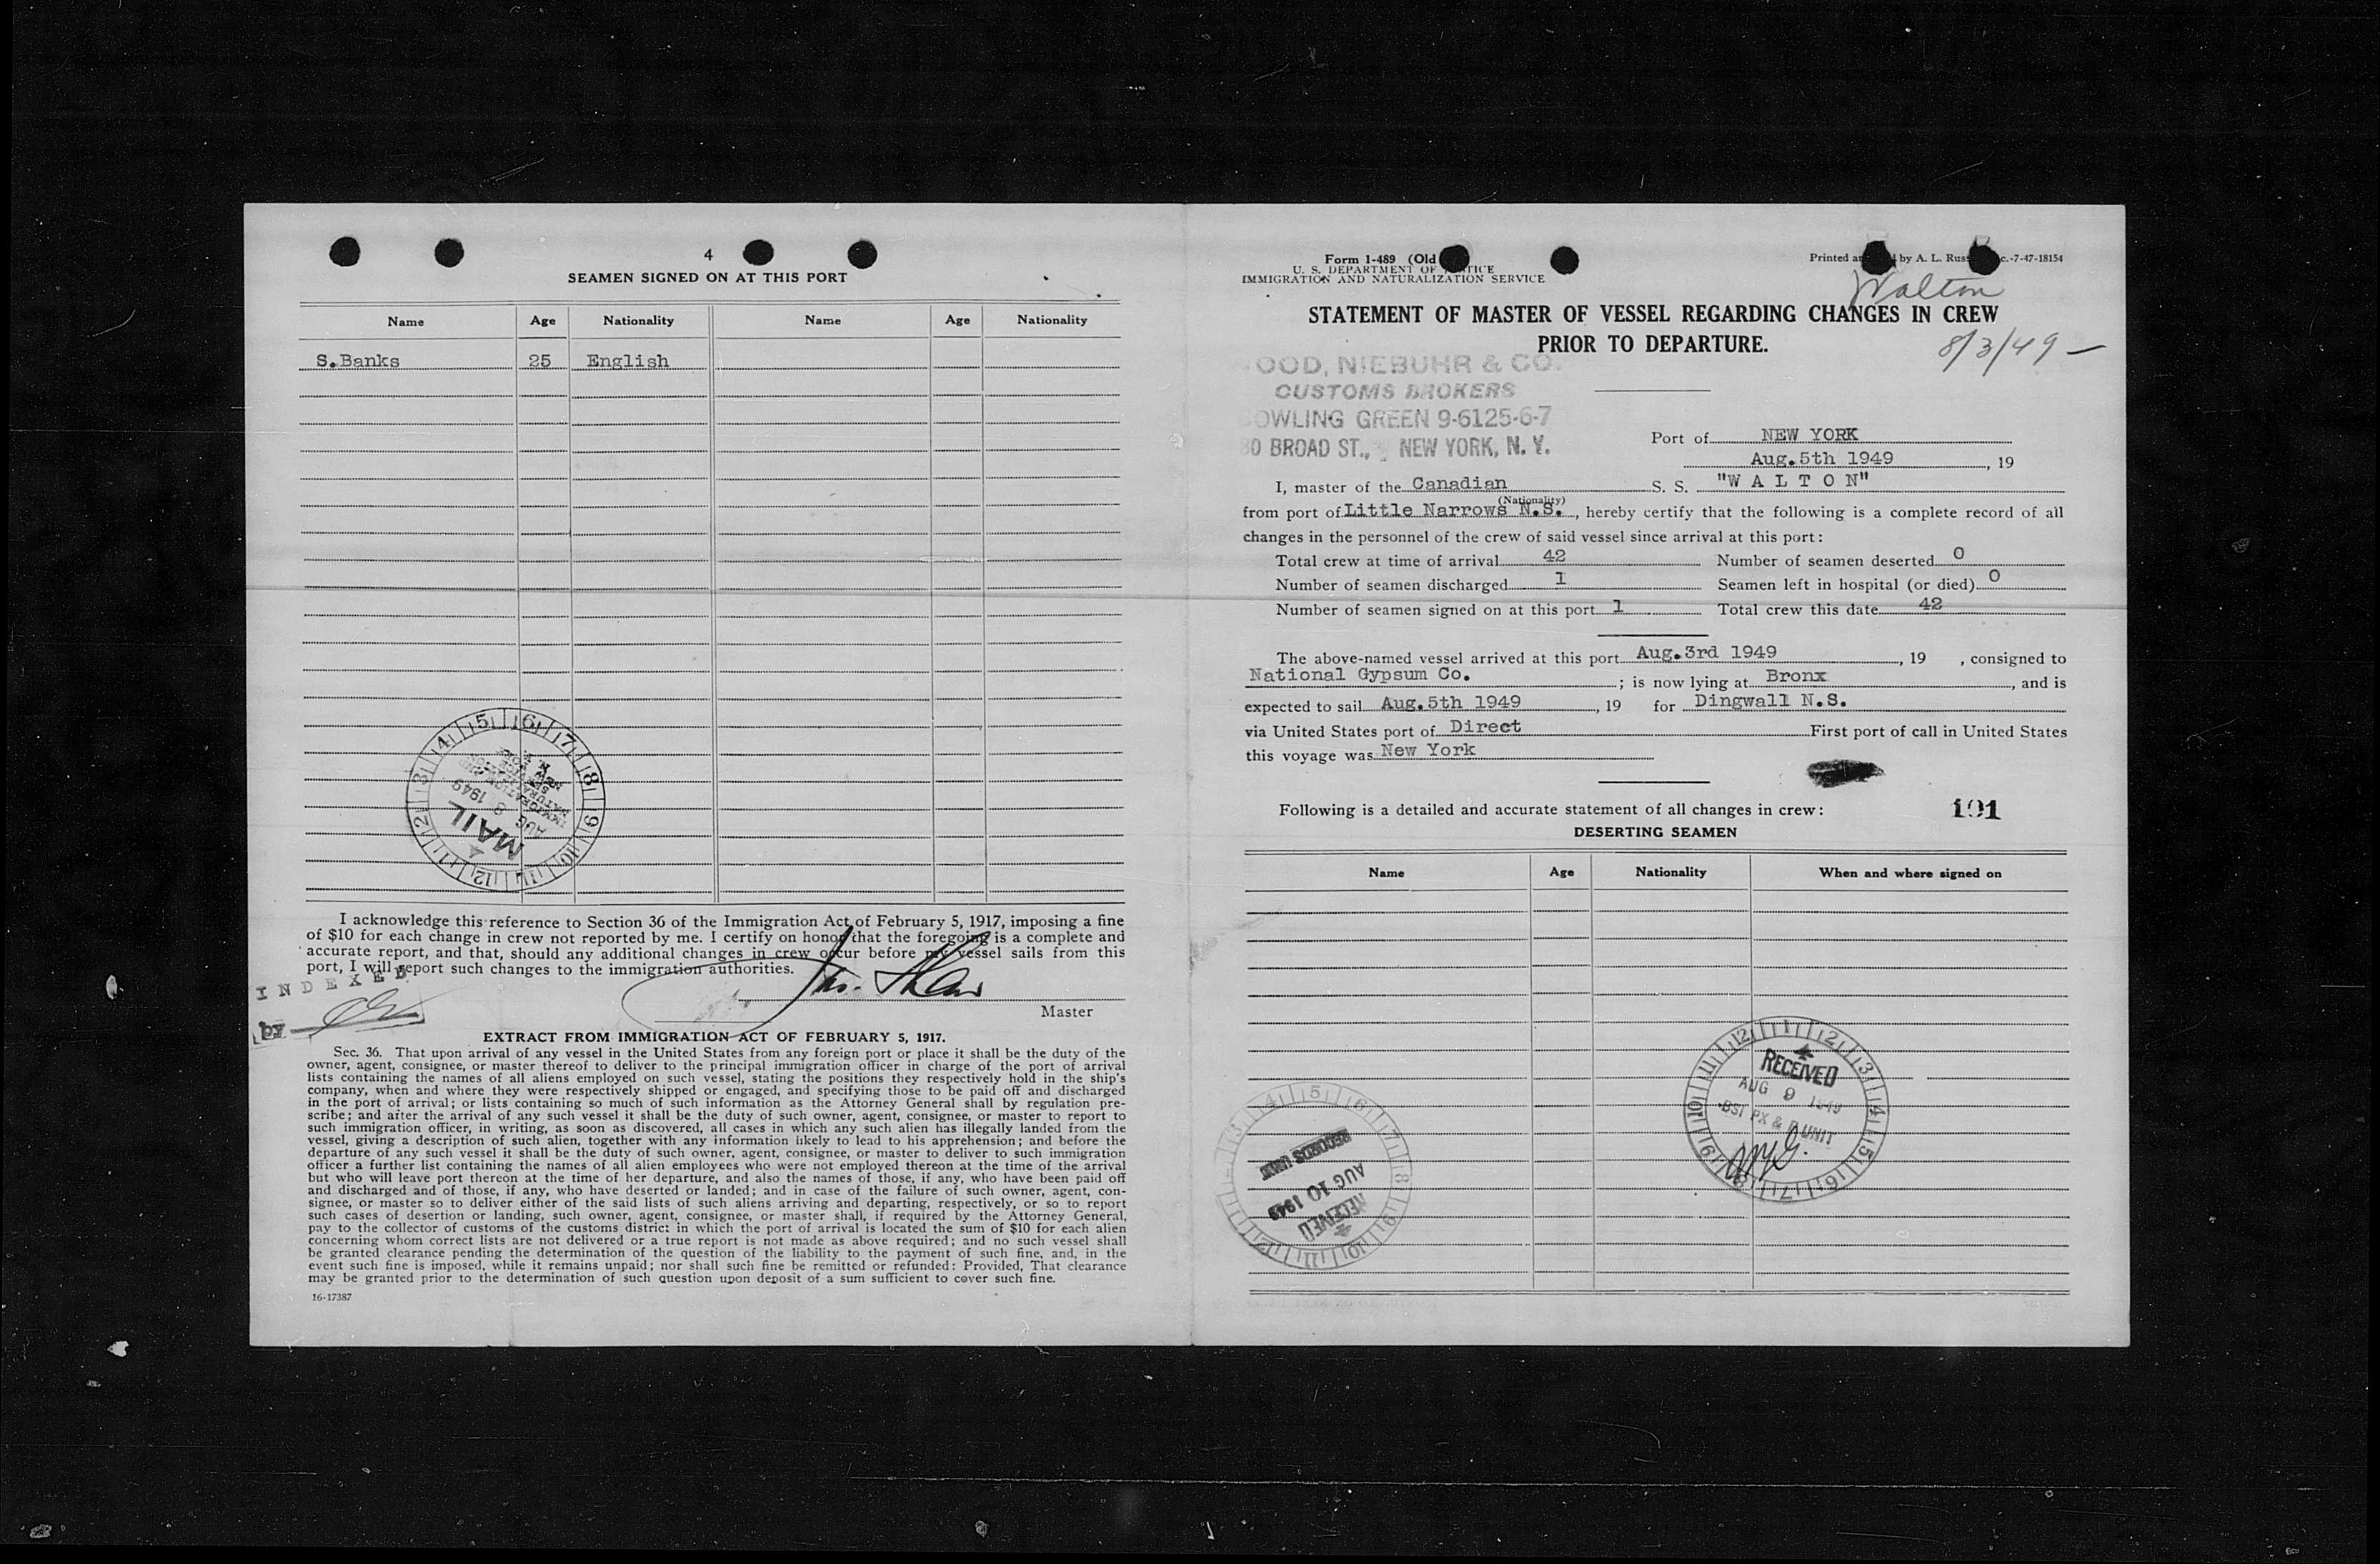 4
SEAMEN SIGNED ON AT THIS PORT
Name Age Nationality Name Age Nationality
S.Banks 25 English
5 6 7 8 9 10 11 12 1 2 3 4
MAIL
AUG 8 1949
I acknowledge this reference to Section 36 of the Immigration Act of February 5, 1917, imposing a fine
of $10 for each change in crew not reported by me. I certify on honor that the foregoing is a complete and
accurate report, and that, should any additional changes in crew occur before my vessel sails from this
port, I will report such changes to the immigration authorities.
INDEXED
by
Master
EXTRACT FROM IMMIGRATION ACT OF FEBRUARY 5, 1917.
Sec. 36. That upon arrival of any vessel in the United States from any foreign port or place it shall be the duty of the
owner, agent, consignee, or master thereof to deliver to the principal immigration officer in charge of the port of arrival
lists containing the names of all aliens employed on such vessel, stating the positions they respectively hold in the ship's
company, when and where they were respectively shipped or engaged, and specifying those to be paid off and discharged
in the port of arrival; or lists containing so much of such information as the Attorney General shall by regulation pre-
scribe; and after the arrival of any such vessel it shall be the duty of such owner, agent, consignee, or master to report to
such immigration officer, in writing, as soon as discovered, all cases in which any such alien has illegally landed from the
vessel, giving a description of such alien, together with any information likely to lead to his apprehension; and before the
departure of any such vessel it shall be the duty of such owner, agent, consignee, or master to deliver to such immigration
officer a further list containing the names of all alien employees who were not employed thereon at the time of the arrival
but who will leave port thereon at the time of her departure, and also the names of those, if any, who have been paid off
and discharged and of those, if any, who have deserted or landed; and in case of the failure of such owner, agent, con-
signee, or master so to deliver either of the said lists of such aliens arriving and departing, respectively, or so to report
such cases of desertion or landing, such owner, agent, consignee, or master shall, if required by the Attorney General,
pay to the collector of customs of the customs district in which the port of arrival is located the sum of $10 for each alien
concerning whom correct lists are not delivered or a true report is not made as above required; and no such vessel shall
be granted clearance pending the determination of the question of the liability to the payment of such fine, and, in the
event such fine is imposed, while it remains unpaid; nor shall such fine be remitted or refunded: Provided, That clearance
may be granted prior to the determination of such question upon deposit of a sum sufficient to cover such fine.
16-17387
Form 1-489 (Old
U. S. DEPARTMENT OF
IMMIGRATION AND NATURALIZATION SERVICE
Printed by A. L. -7-47-18154
Walton
STATEMENT OF MASTER OF VESSEL REGARDING CHANGES IN CREW
PRIOR TO DEPARTURE.
8/3/49 —
OOD, NIEBUHR & CO.
CUSTOMS BROKERS
OWLING GREEN 9-6125-6-7
80 BROAD ST., NEW YORK, N. Y.
Port of NEW YORK
Aug.5th 1949 , 19
I, master of the Canadian S. S. "W A L T O N"
(Nationality)
from port of Little Narrows N.S. , hereby certify that the following is a complete record of all
changes in the personnel of the crew of said vessel since arrival at this port:
Total crew at time of arrival 42 Number of seamen deserted 0
Number of seamen discharged 1 Seamen left in hospital (or died) 0
Number of seamen signed on at this port 1 Total crew this date 42
The above-named vessel arrived at this port Aug.3rd 1949 , 19 , consigned to
National Gypsum Co. ; is now lying at Bronx , and is
expected to sail Aug.5th 1949 , 19 for Dingwall N.S.
via United States port of Direct First port of call in United States
this voyage was New York
Following is a detailed and accurate statement of all changes in crew:
191
DESERTING SEAMEN
Name Age Nationality When and where signed on
12 1 2 3 4 5 6 7 8 9 10 11
RECEIVED
AUG 9 1949
BSI PX & D UNIT
RECORDS UNIT
AUG 10 1949
RECEIVED